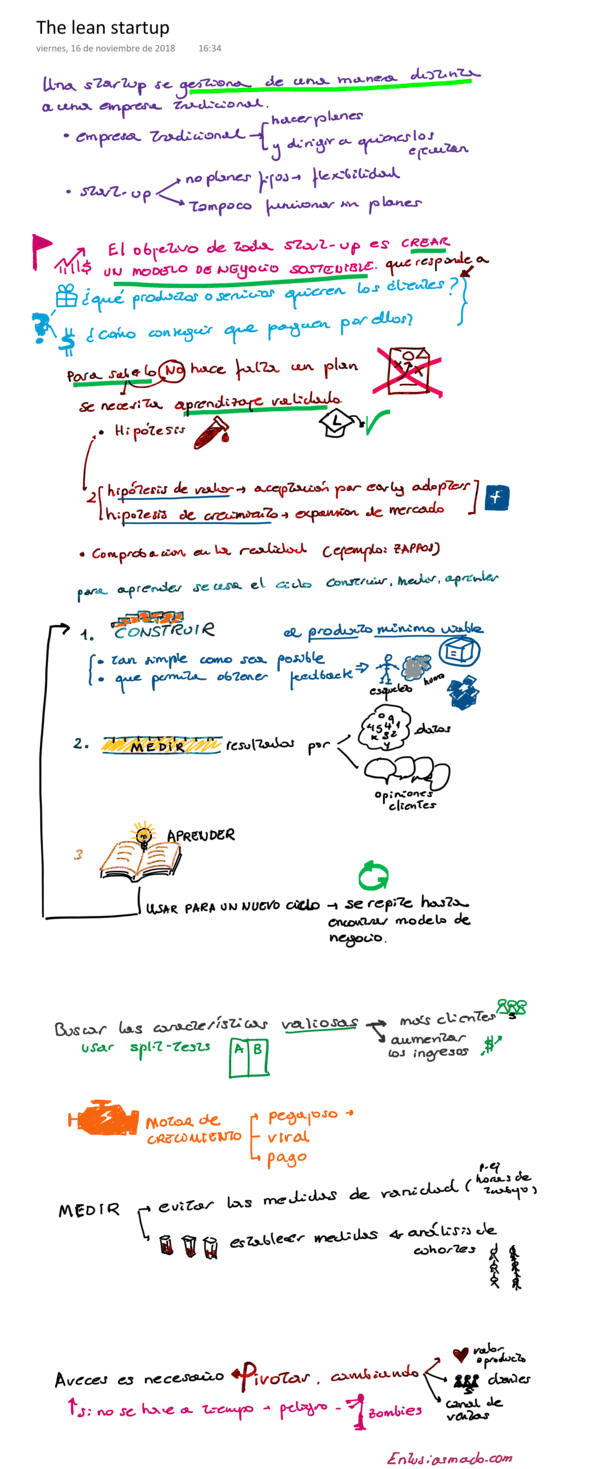 The lean startup
viernes, 16 de noviembre de 2018 16:34
Una startup se gestiona de una manera distinta
a una empresa tradicional.
• empresa tradicional → hacer planes
y dirigir a quienes los
ejecutan
• start-up no planes fijos → flexibilidad
tampoco funcionar sin planes
$ El objetivo de toda start-up es CREAR
UN MODELO DE NEGOCIO SOSTENIBLE. que responde a
¿qué productos o servicios quieren los clientes?
? $ ¿Cómo conseguir que paguen por ellos?
Para saberlo NO hace falta un plan
se necesita aprendizaje validado
• Hipótesis
L
2 hipótesis de valor → aceptación por early adopters
hipótesis de crecimiento → expansión de mercado
f
• Comprobación en la realidad (ejemplo: ZAPPOS)
para aprender se usa el ciclo construir, medir, aprender
1. CONSTRUIR el producto mínimo viable
• tan simple como sea posible
• que permita obtener feedback
esqueleto humo
2. MEDIR resultados por datos
opiniones
clientes
3 APRENDER
USAR PARA UN NUEVO CICLO → se repite hasta
encontrar modelo de
negocio.
Buscar las características valiosas → más clientes
usar split-tests A B aumentar
los ingresos $
MOTOR DE
CRECIMIENTO
pegajoso →
viral
pago
MEDIR → evitar las medidas de vanidad (p.ej
horas de
trabajo)
establecer medidas análisis de
cohortes
A veces es necesario Pivotar, cambiando
valor
o producto
clientes
canal de
ventas
↑ si no se hace a tiempo → peligro - zombies
Entusiasmado.com